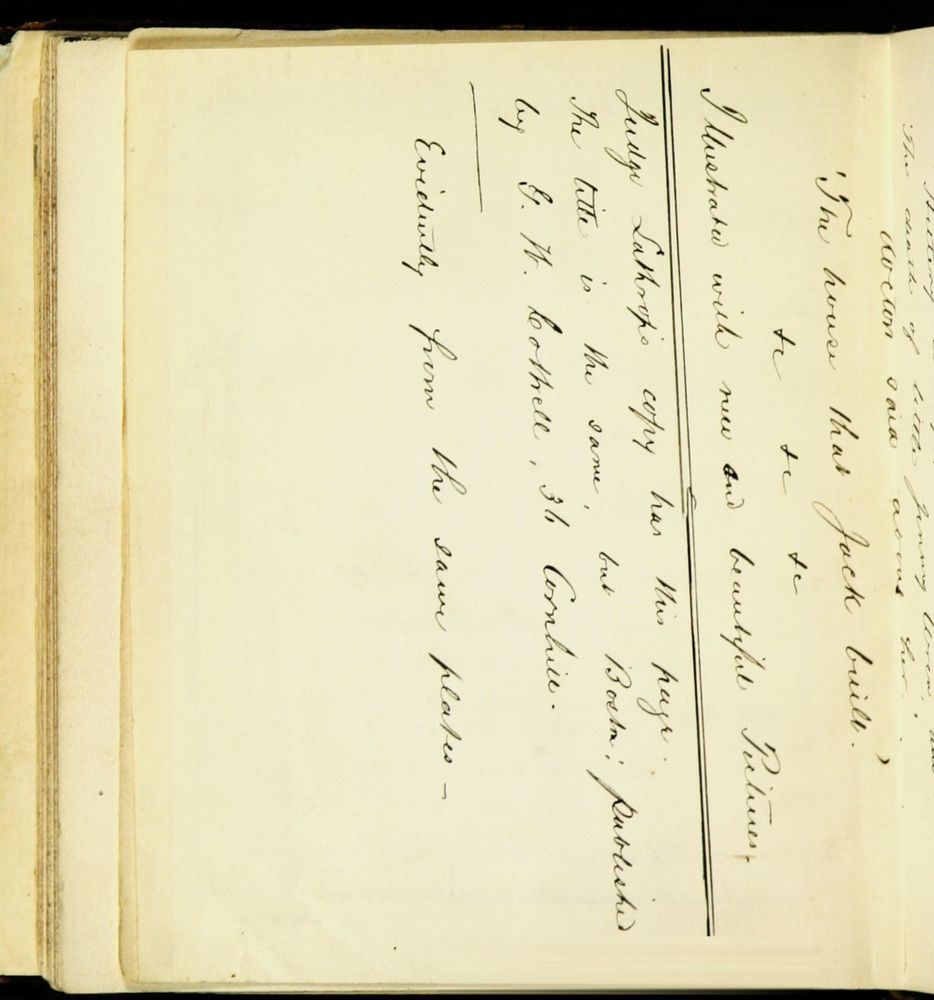 The death of little Jenny Wren,
doctor said about her.
'The house that Jack built.'
&c &c &c
Illustrated with new and beautiful Pictures.
Judge Lathrop's copy has this page.
The title is the same, but Boston; published
by G. W. Cottrell, 36 Cornhill.
Evidently from the same plates —